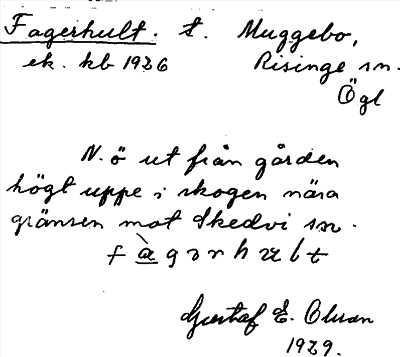 Fagerhult. t. Muggebo,
ek. kb 1926 Risinge sn.
Ögl
N.ö ut från gården
högt uppe i skogen nära
gränsen mot Skedvi sn.
Gustaf E. Olsson
1929.